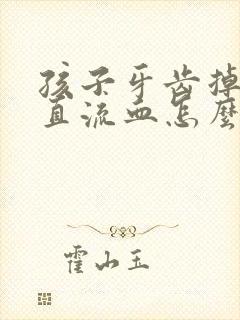 孩子牙齿掉
直流血怎麼
霍小玉